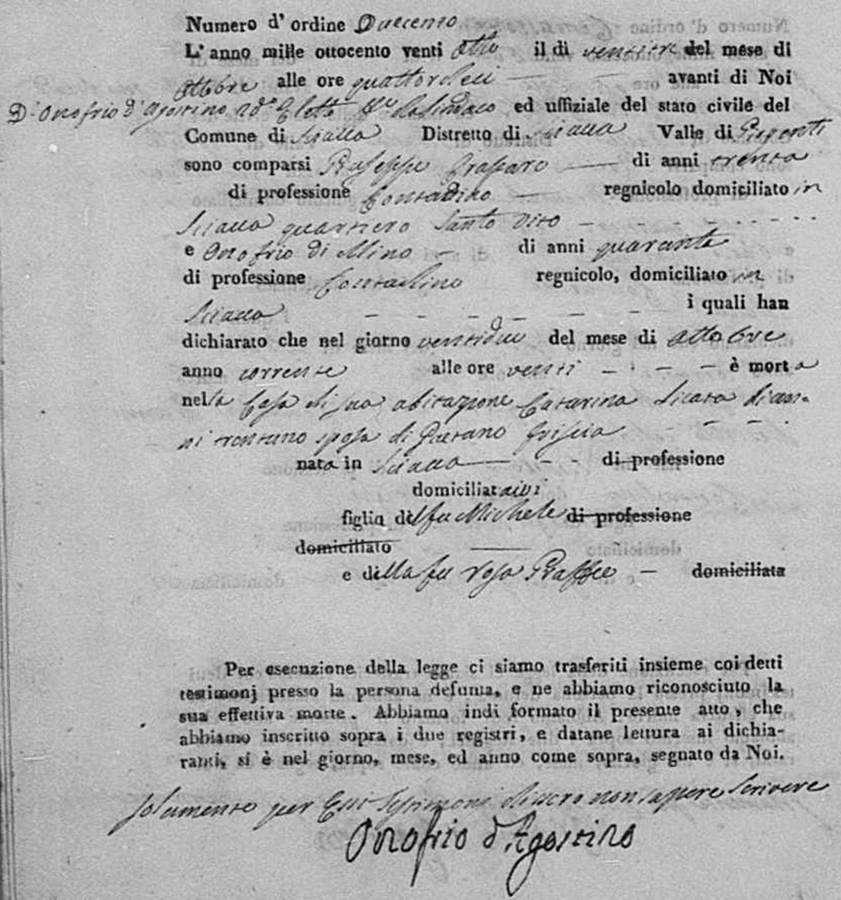 Numero d' ordine Duecento
L' anno mille ottocento venti otto il di ventitre del mese di
Ottobre alle ore quattordeci avanti di Noi
D. Onofrio d'Agostino ed uffiziale del stato civile del
Comune di Sciacca Distretto di Sciacca Valle di Girgenti
sono comparsi di anni trenta
di professione Contadino regnicolo domiciliato in
Sciacca quartiero Santo Vito
e Onofrio di Mino di anni quaranta
di professione Contadino regnicolo, domiciliato in
Sciacca i quali han
dichiarato che nel giorno ventidue del mese di Ottobre
anno corrente alle ore venti è morta
nella Casa di sua abitazione Catarina Licata di an-
ni trentuno sposa di Gaetano Friscia
nata in Sciacca di professione
domiciliata ivi
figlia del fu Michele di professione
domiciliato
e della fu Rosa domiciliata
Per esecuzione della legge ci siamo trasferiti insieme coi detti
testimonj presso la persona defunta, e ne abbiamo riconosciuto la
sua effettiva morte. Abbiamo indi formato il presente atto, che
abbiamo inscritto sopra i due registri, e datane lettura ai dichia-
ranti, si è nel giorno, mese, ed anno come sopra, segnato da Noi.
solamente per Essi Testimoni non sapere scrivere
Onofrio d'Agostino